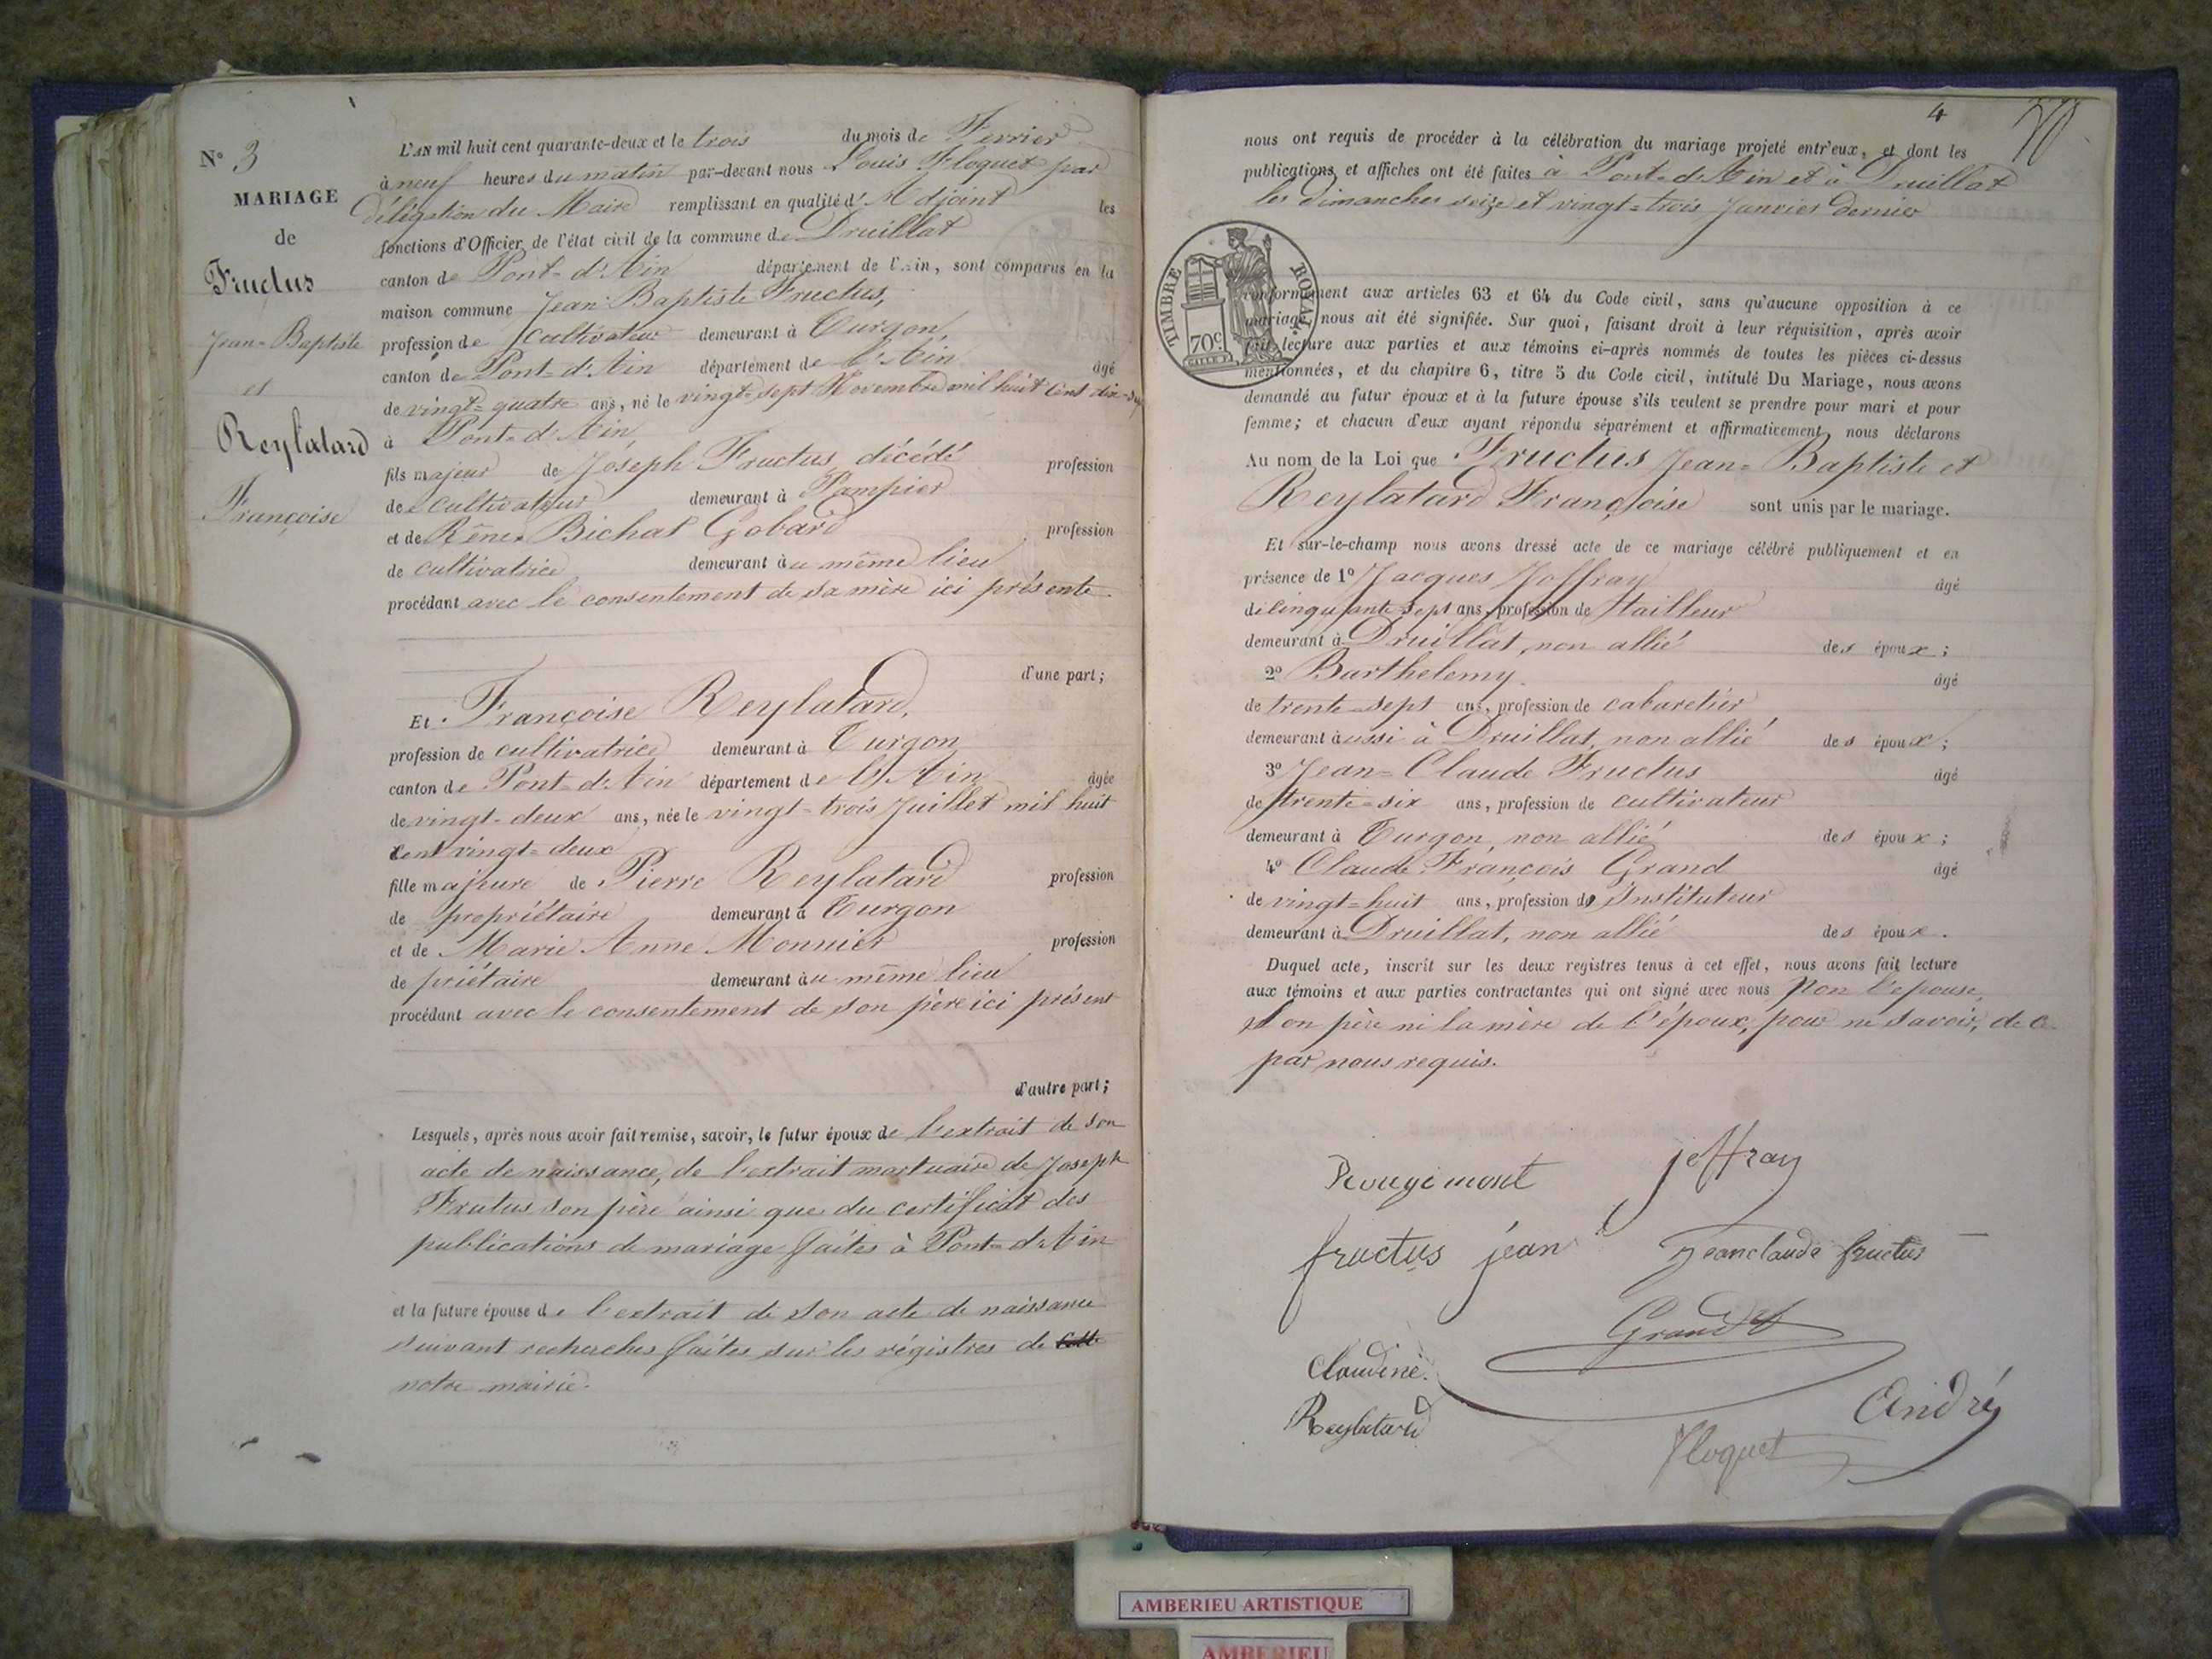 N° 3
MARIAGE
de
Fructus
Jean-Baptiste
et
Reylatard
Françoise
L'AN mil huit cent quarante-deux et le trois du mois de Fevrier
à neuf heures du matin par-devant nous Louis Floquet par
délégation du Maire remplissant en qualité d'Adjoint les
fonctions d'Officier de l'état civil de la commune de Druillat
canton de Pont-d'Ain département de l'Ain, sont comparus en la
maison commune Jean Baptiste Fructus,
profession de cultivateur demeurant à Turgon,
canton de Pont-d'Ain département de l'Ain âgé
de vingt-quatre ans, né le vingt-sept Novembre mil huit cent dix-sept
à Pont-d'Ain,
fils majeur de Joseph Fructus décédé profession
de cultivateur demeurant à Pampier
et de Rêne Bichat Gobard profession
de cultivatrice demeurant au même lieu
procédant avec le consentement de sa mère ici présente.
d'une part;
Et Françoise Reylatard,
profession de cultivatrice demeurant à Turgon
canton de Pont-d'Ain département de l'Ain âgée
de vingt-deux ans, née le vingt-trois Juillet mil huit
cent vingt-deux
fille majeure de Pierre Reylatard profession
de propriétaire demeurant à Turgon
et de Marie Anne Monnier profession
de priétaire demeurant au même lieu
procédant avec le consentement de son père ici présent
d'autre part;
Lesquels, après nous avoir fait remise, savoir, le futur époux de l'extrait de son
acte de naissance, de l'extrait mortuaire de Joseph
Frutus son père ainsi que du certificat des
publications de mariage faites à Pont-d'Ain
et la future épouse de l'extrait de son acte de naissance
suivant recherches faites sur les régistres de
notre mairie.
4
nous ont requis de procéder à la célébration du mariage projeté entr'eux, et dont les
publications et affiches ont été faites à Pont-d'Ain et à Druillat
les dimanches seize et vingt-trois Janvier dernier
TIMBRE ROYAL.
70c
conformément aux articles 63 et 64 du Code civil, sans qu'aucune opposition à ce
mariage nous ait été signifiée. Sur quoi, faisant droit à leur réquisition, après avoir
fait lecture aux parties et aux témoins ci-après nommés de toutes les pièces ci-dessus
mentionnées, et du chapitre 6, titre 5 du Code civil, intitulé Du Mariage, nous avons
demandé au futur époux et à la future épouse s'ils veulent se prendre pour mari et pour
femme; et chacun d'eux ayant répondu séparément et affirmativement, nous déclarons
Au nom de la Loi que Fructus Jean-Baptiste et
Reylatard Françoise sont unis par le mariage.
Et sur-le-champ nous avons dressé acte de ce mariage célébré publiquement et en
présence de 1° Jacques Joffray âgé
de cinquante sept ans, profession de tailleur
demeurant à Druillat, non allié des époux;
2° Barthelemy. âgé
de trente-sept ans, profession de cabaretier
demeurant aussi à Druillat, non allié des époux;
3° Jean-Claude Fructus âgé
de trente-six ans, profession de cultivateur
demeurant à Turgon, non allié des époux;
4° Claude François Grand âgé
de vingt-huit ans, profession de Instituteur
demeurant à Druillat, non allié des époux.
Duquel acte, inscrit sur les deux registres tenus à cet effet, nous avons fait lecture
aux témoins et aux parties contractantes qui ont signé avec nous Non l'epouse,
son père ni la mère de l'époux, pour ne savoir, de ce
par nous requis.
Rougemont joffray
fructus jean Jeanclaude fructus
Grand
Claudine
Reylatard
André
Floquet
AMBERIEU ARTISTIQUE
AMBERIEU